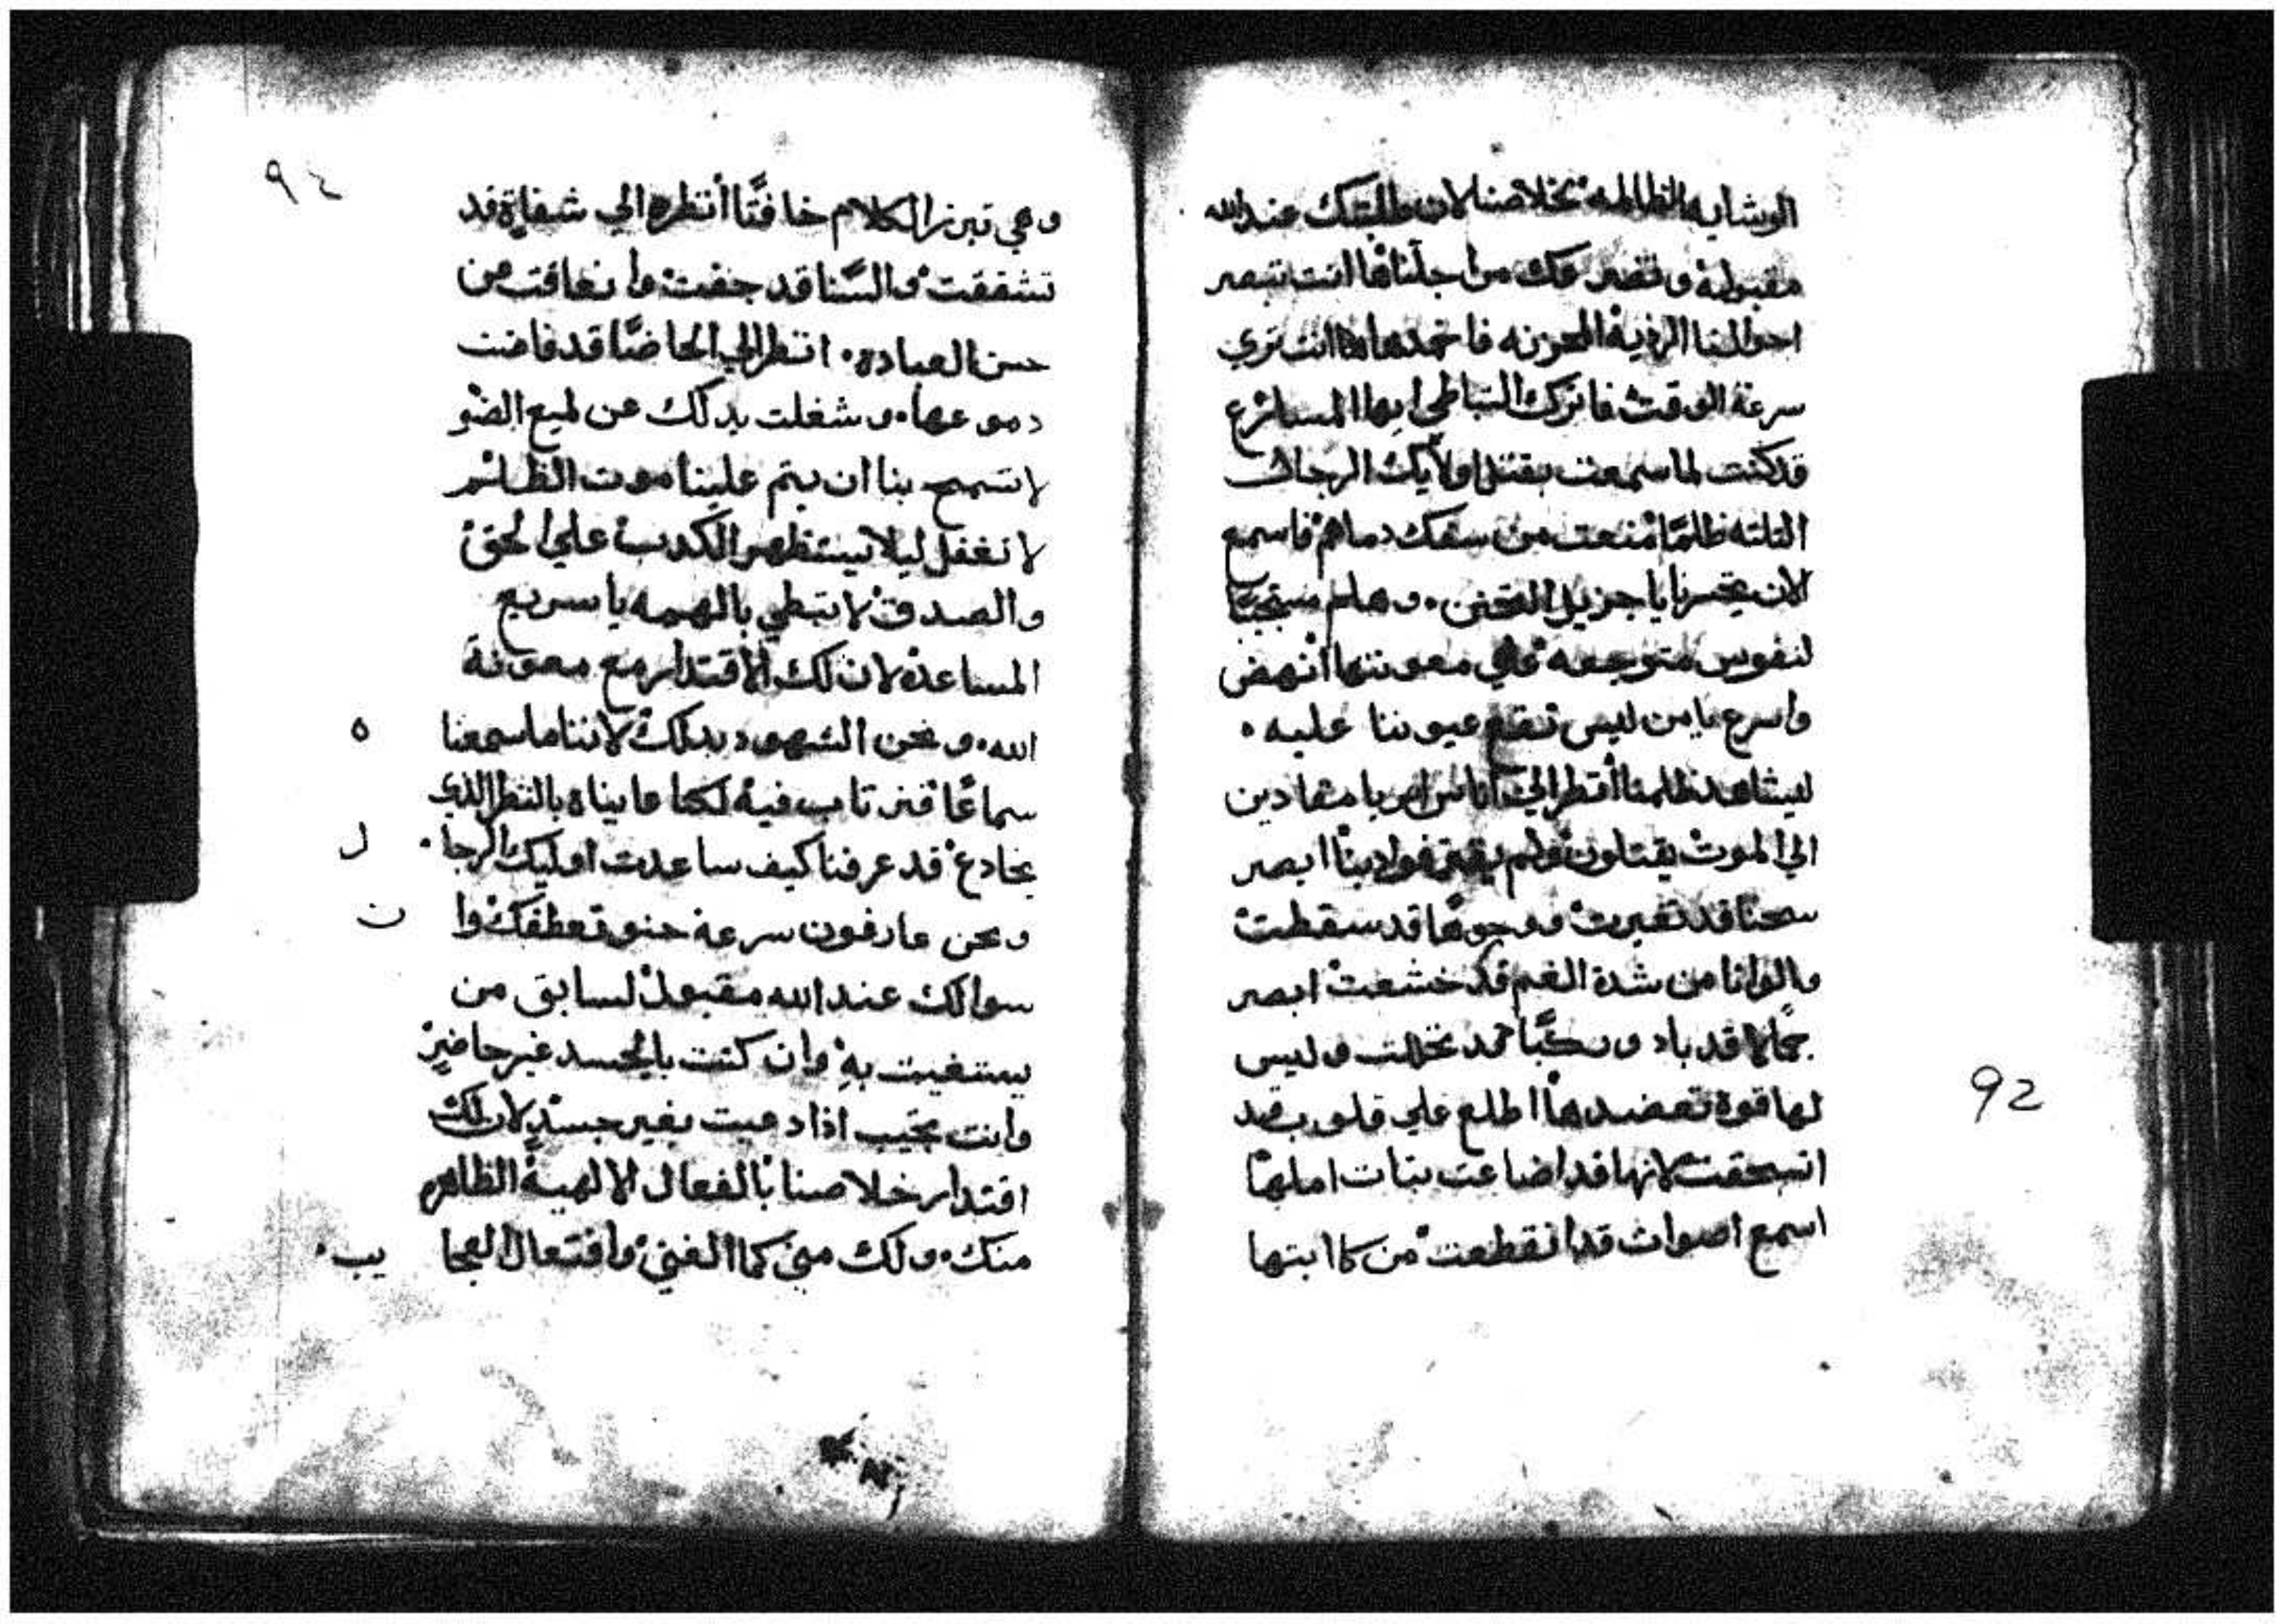 الوشايه الظالمه بخلاصنا لان طلبتك عند الله
مقبوله وتضرعك من اجلنا ها انت تبصر
احوالنا الرزية المحزنه فاخمدها ها انت تري
سرعة الوقت فاترك التباطي ايها المسارع
قد كنت لما سمعت بقتل اولايك الرجال
التلته ظلمًا منعت من سفك دماهم فاسمع
الان يا جزيل التحنن. وهلم مستجيبًا
لنفوس متوجعه وفي معونتها انهض
واسرع يا من ليس تقع عيوننا عليه.
ليشاهد ظلمنا أنظر الي اناس ابريا مقادين
الي الموت يقتلون ولم ابصر
سحنًا قد تغيرت ووجوهًا قد سقطت
والوانا من شدة الغم قد خشعت ابصر
جمالا قد باد وركبًا قد نحلت وليس
لها قوة تعضدها اطلع علي قلوب قد
انسحقت لانها قد اضاعت بتات املها
اسمع اصوات قد انقطعت من كابتها
92
٩٤
وهي تبرز الكلام خافتًا أنظر الي شفاة قد
تشققت والسنا قد جفت وانعاقت من
حسن العبادة. انظر الي الحاضًا قد فاضت
دموعها. وشغلت بدلك عن لميع الضو
لا تسمح بنا ان يتم علينا موت الظالم
لا تغفل ليلا يستظهر الكدب علي الحق
والصدق لا تبطي بالهمه يا سريع
المساعدة لان لك الاقتدار مع معونة
الله. ونحن الشهود بدلك لاننا ما سمعنا
سماعًا فنرتاب فيه لكنا عايناه بالنظر الذي
يخادع قد عرفنا كيف ساعدت اوليك الرجا ل
ونحن عارفون سرعة حنو تعطفك وا ن
سوالك عند الله مقبول لسابق من
يستغيت به وان كنت بالجسد غير حاضر
وانت تجيب اذا دعيت بغير جسد لان لك
اقتدار خلاصنا بالفعال الالهية الظاهره
منك. ولك مني كما الغني وافتعال العجا يب.